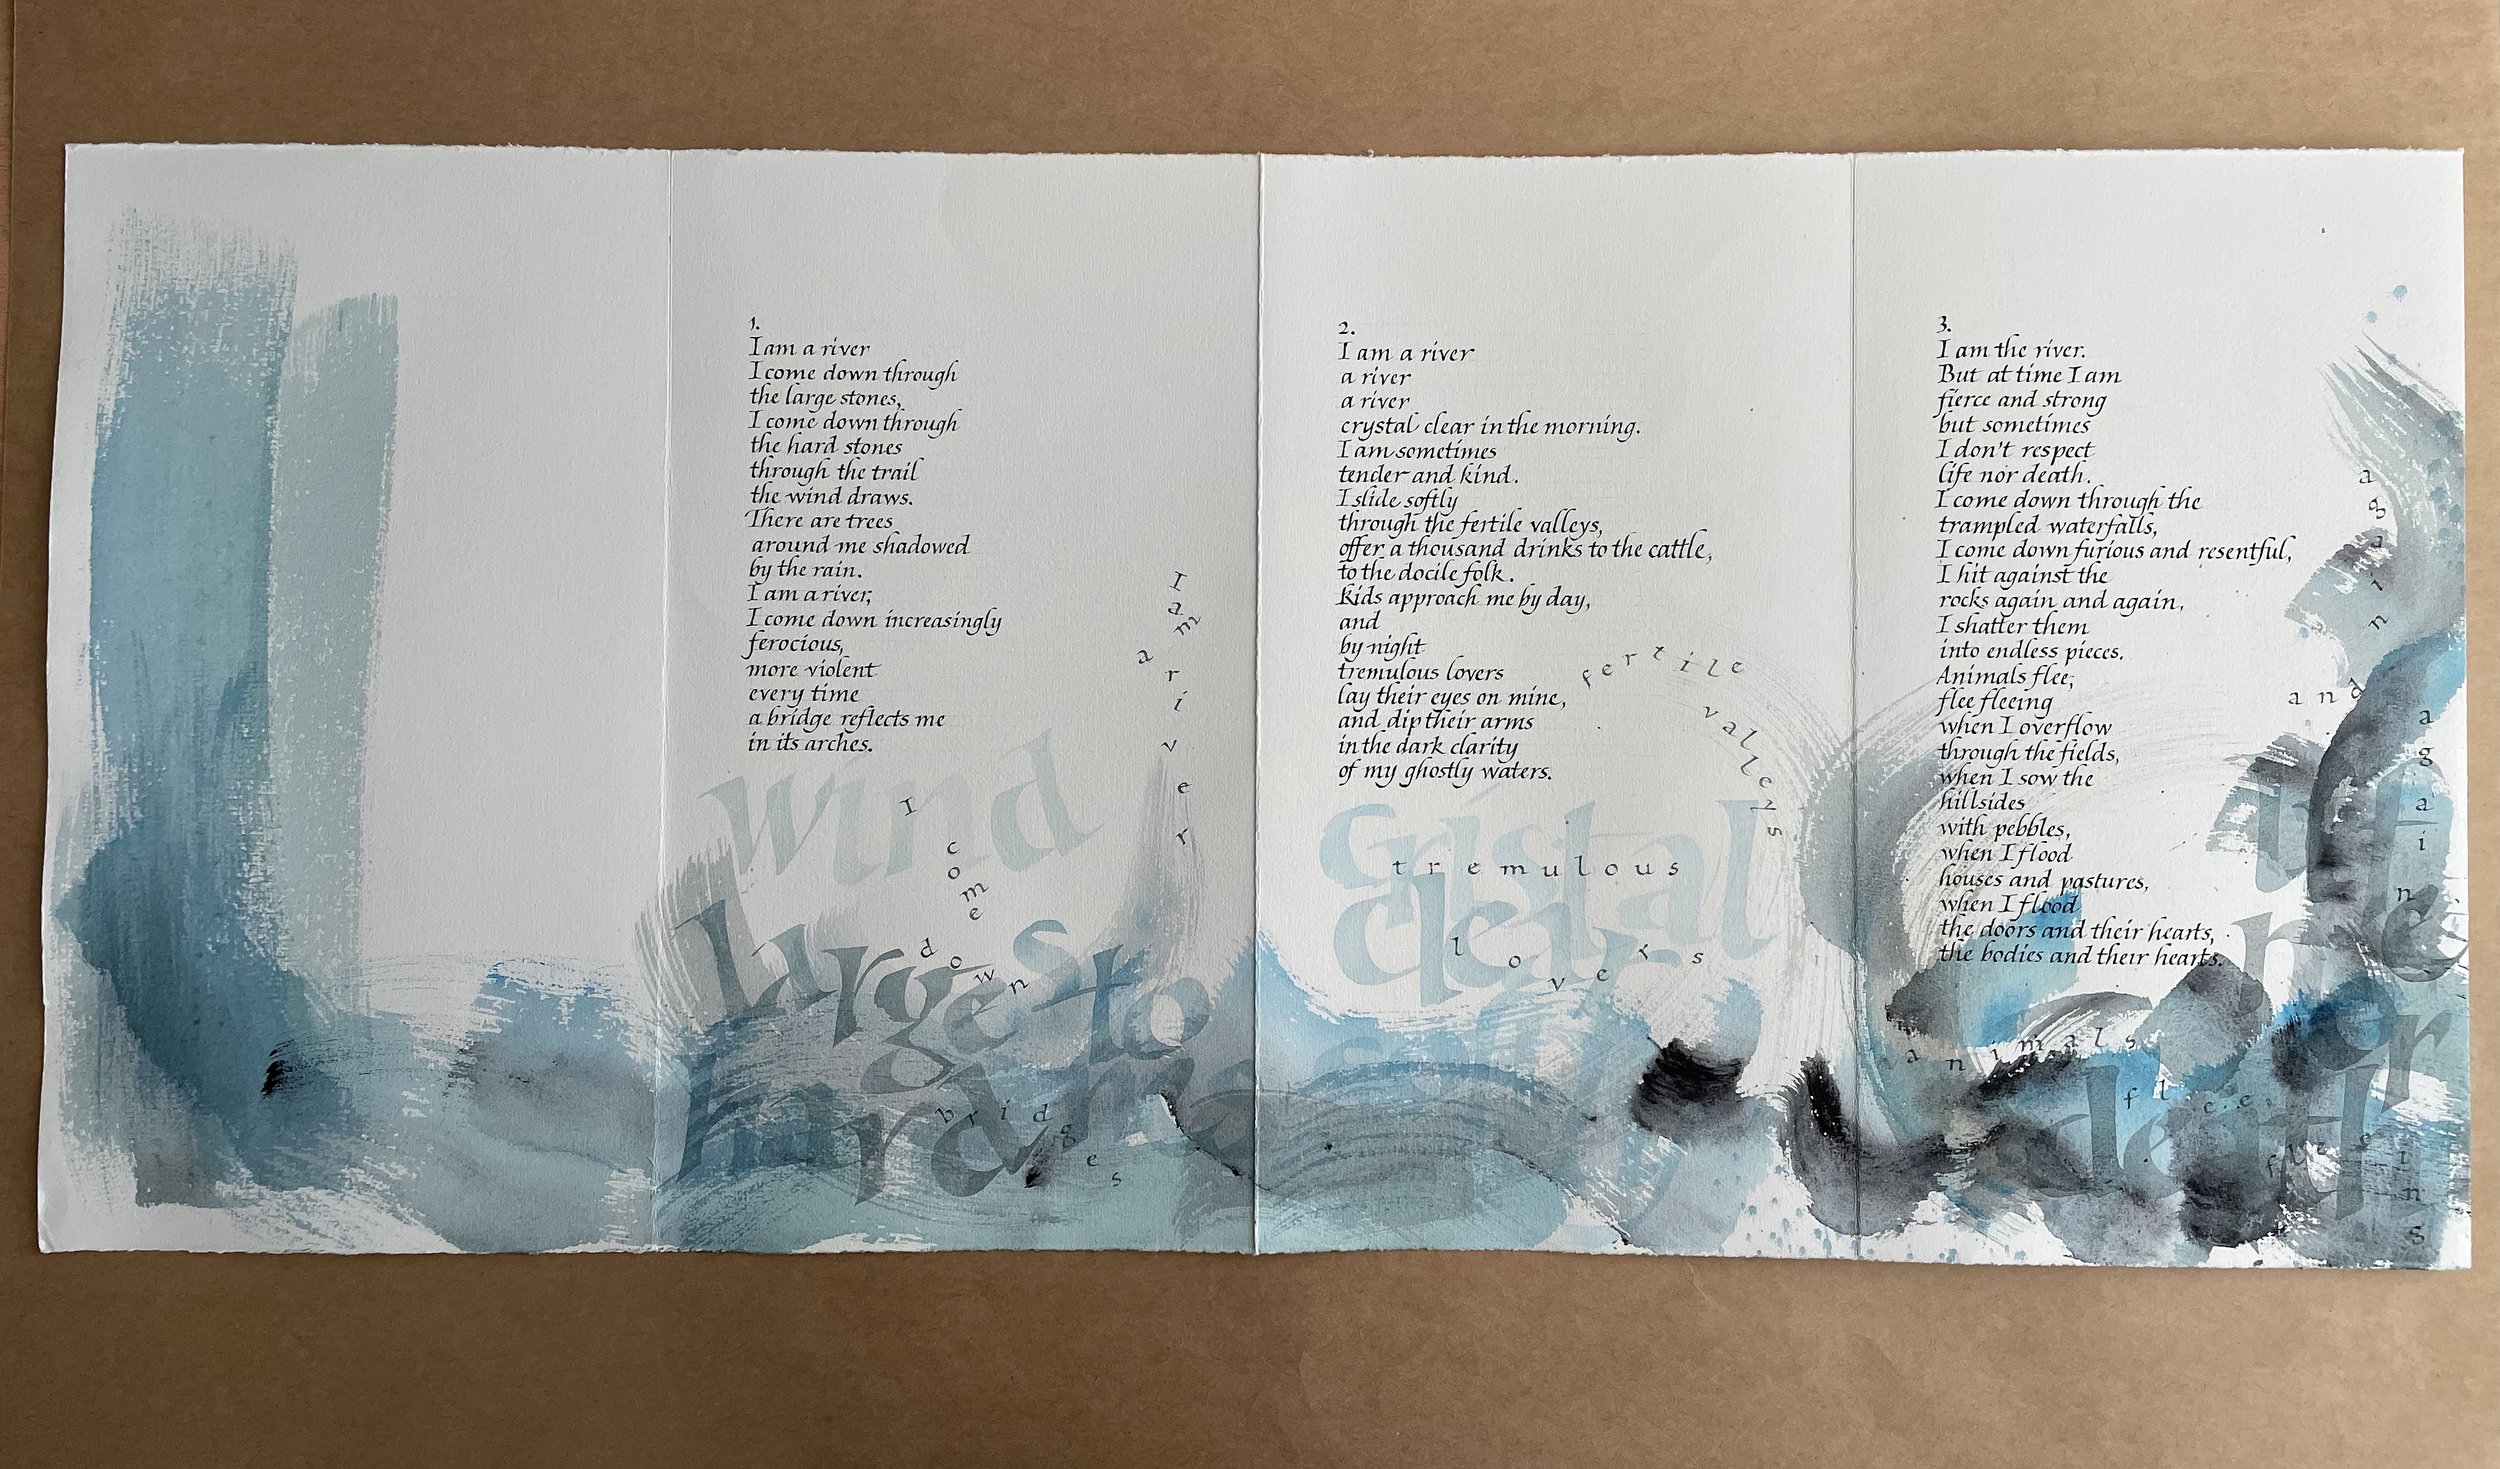 1.
I am a river
I come down through
the large stones,
I come down through
the hard stones
through the trail
the wind draws.
There are trees
around me shadowed
by the rain.
I am a river,
I come down increasingly
ferocious,
more violent
every time
a bridge reflects me
in its arches.
I am
a river
I
come
down
wind
large sto
hard
bridges
2.
I am a river
a river
a river
crystal clear in the morning.
I am sometimes
tender and kind.
I slide softly
through the fertile valleys,
offer a thousand drinks to the cattle,
to the docile folk.
Kids approach me by day,
and
by night
tremulous lovers
lay their eyes on mine,
and dip their arms
in the dark clarity
of my ghostly waters.
fertile
valleys
cristal
tremulous
lovers
3.
I am the river.
But at time I am
fierce and strong
but sometimes
I don't respect
life nor death.
I come down through the
trampled waterfalls,
I come down furious and resentful,
I hit against the
rocks again and again,
I shatter them
into endless pieces.
Animals flee,
flee fleeing
when I overflow
through the fields,
when I sow the
hillsides
with pebbles,
when I flood
houses and pastures,
when I flood
the doors and their hearts,
the bodies and their hearts.
again
and
again
animals
flee
death